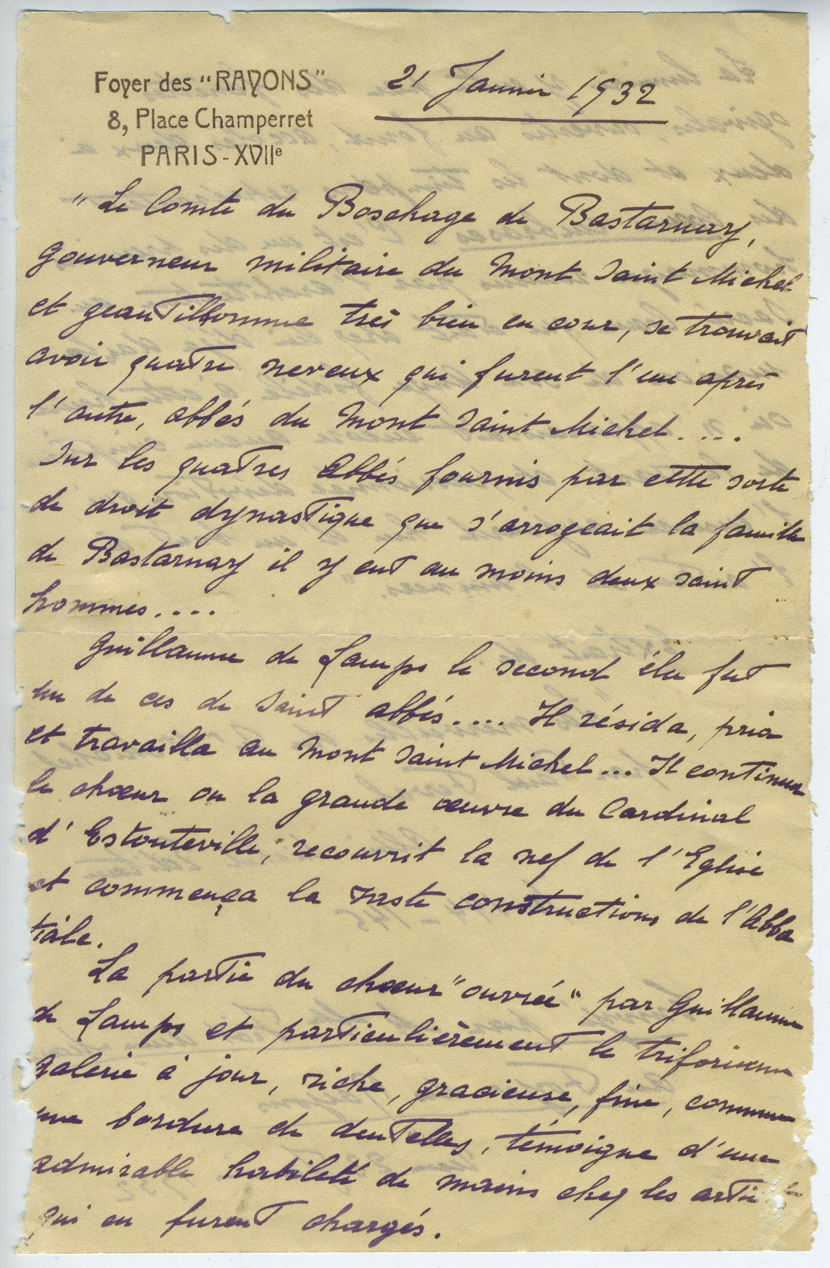 Foyer des "RAYONS"
8, Place Champerret
PARIS - XVIIe
21 Janvier 1932
"Le Comte du Boschage de Bastarnay,
gouverneur militaire du Mont Saint Michel
et geantilhomme très bien en cour, se trouvait
avoir quatre neveux qui furent l'un après
l'autre, abbés du Mont Saint Michel....
Sur les quatres Abbés fournis par cette sorte
de droit dynastique que s'arrogeait la famille
de Bastarnay il y eut au moins deux saint
hommes....
Guillaume de Lamps le second élu fut
un de ces de saint abbés.... Il résida, pria
et travailla au Mont Saint Michel... Il continua
le chœur ou la grande œuvre du Cardinal
d'Estouteville, recouvrit la nef de l'Eglise
et commença la vaste constructions de l'Abba
tiale.
La partie du chœur "ouvrée" par Guillaume
de Lamps et particulièrement le triforium
galerie à jour, riche, gracieuse, fine, comme
une bordure de dentelles, témoigne d'une
admirable habileté de mains chez les artis
qui en furent chargés.